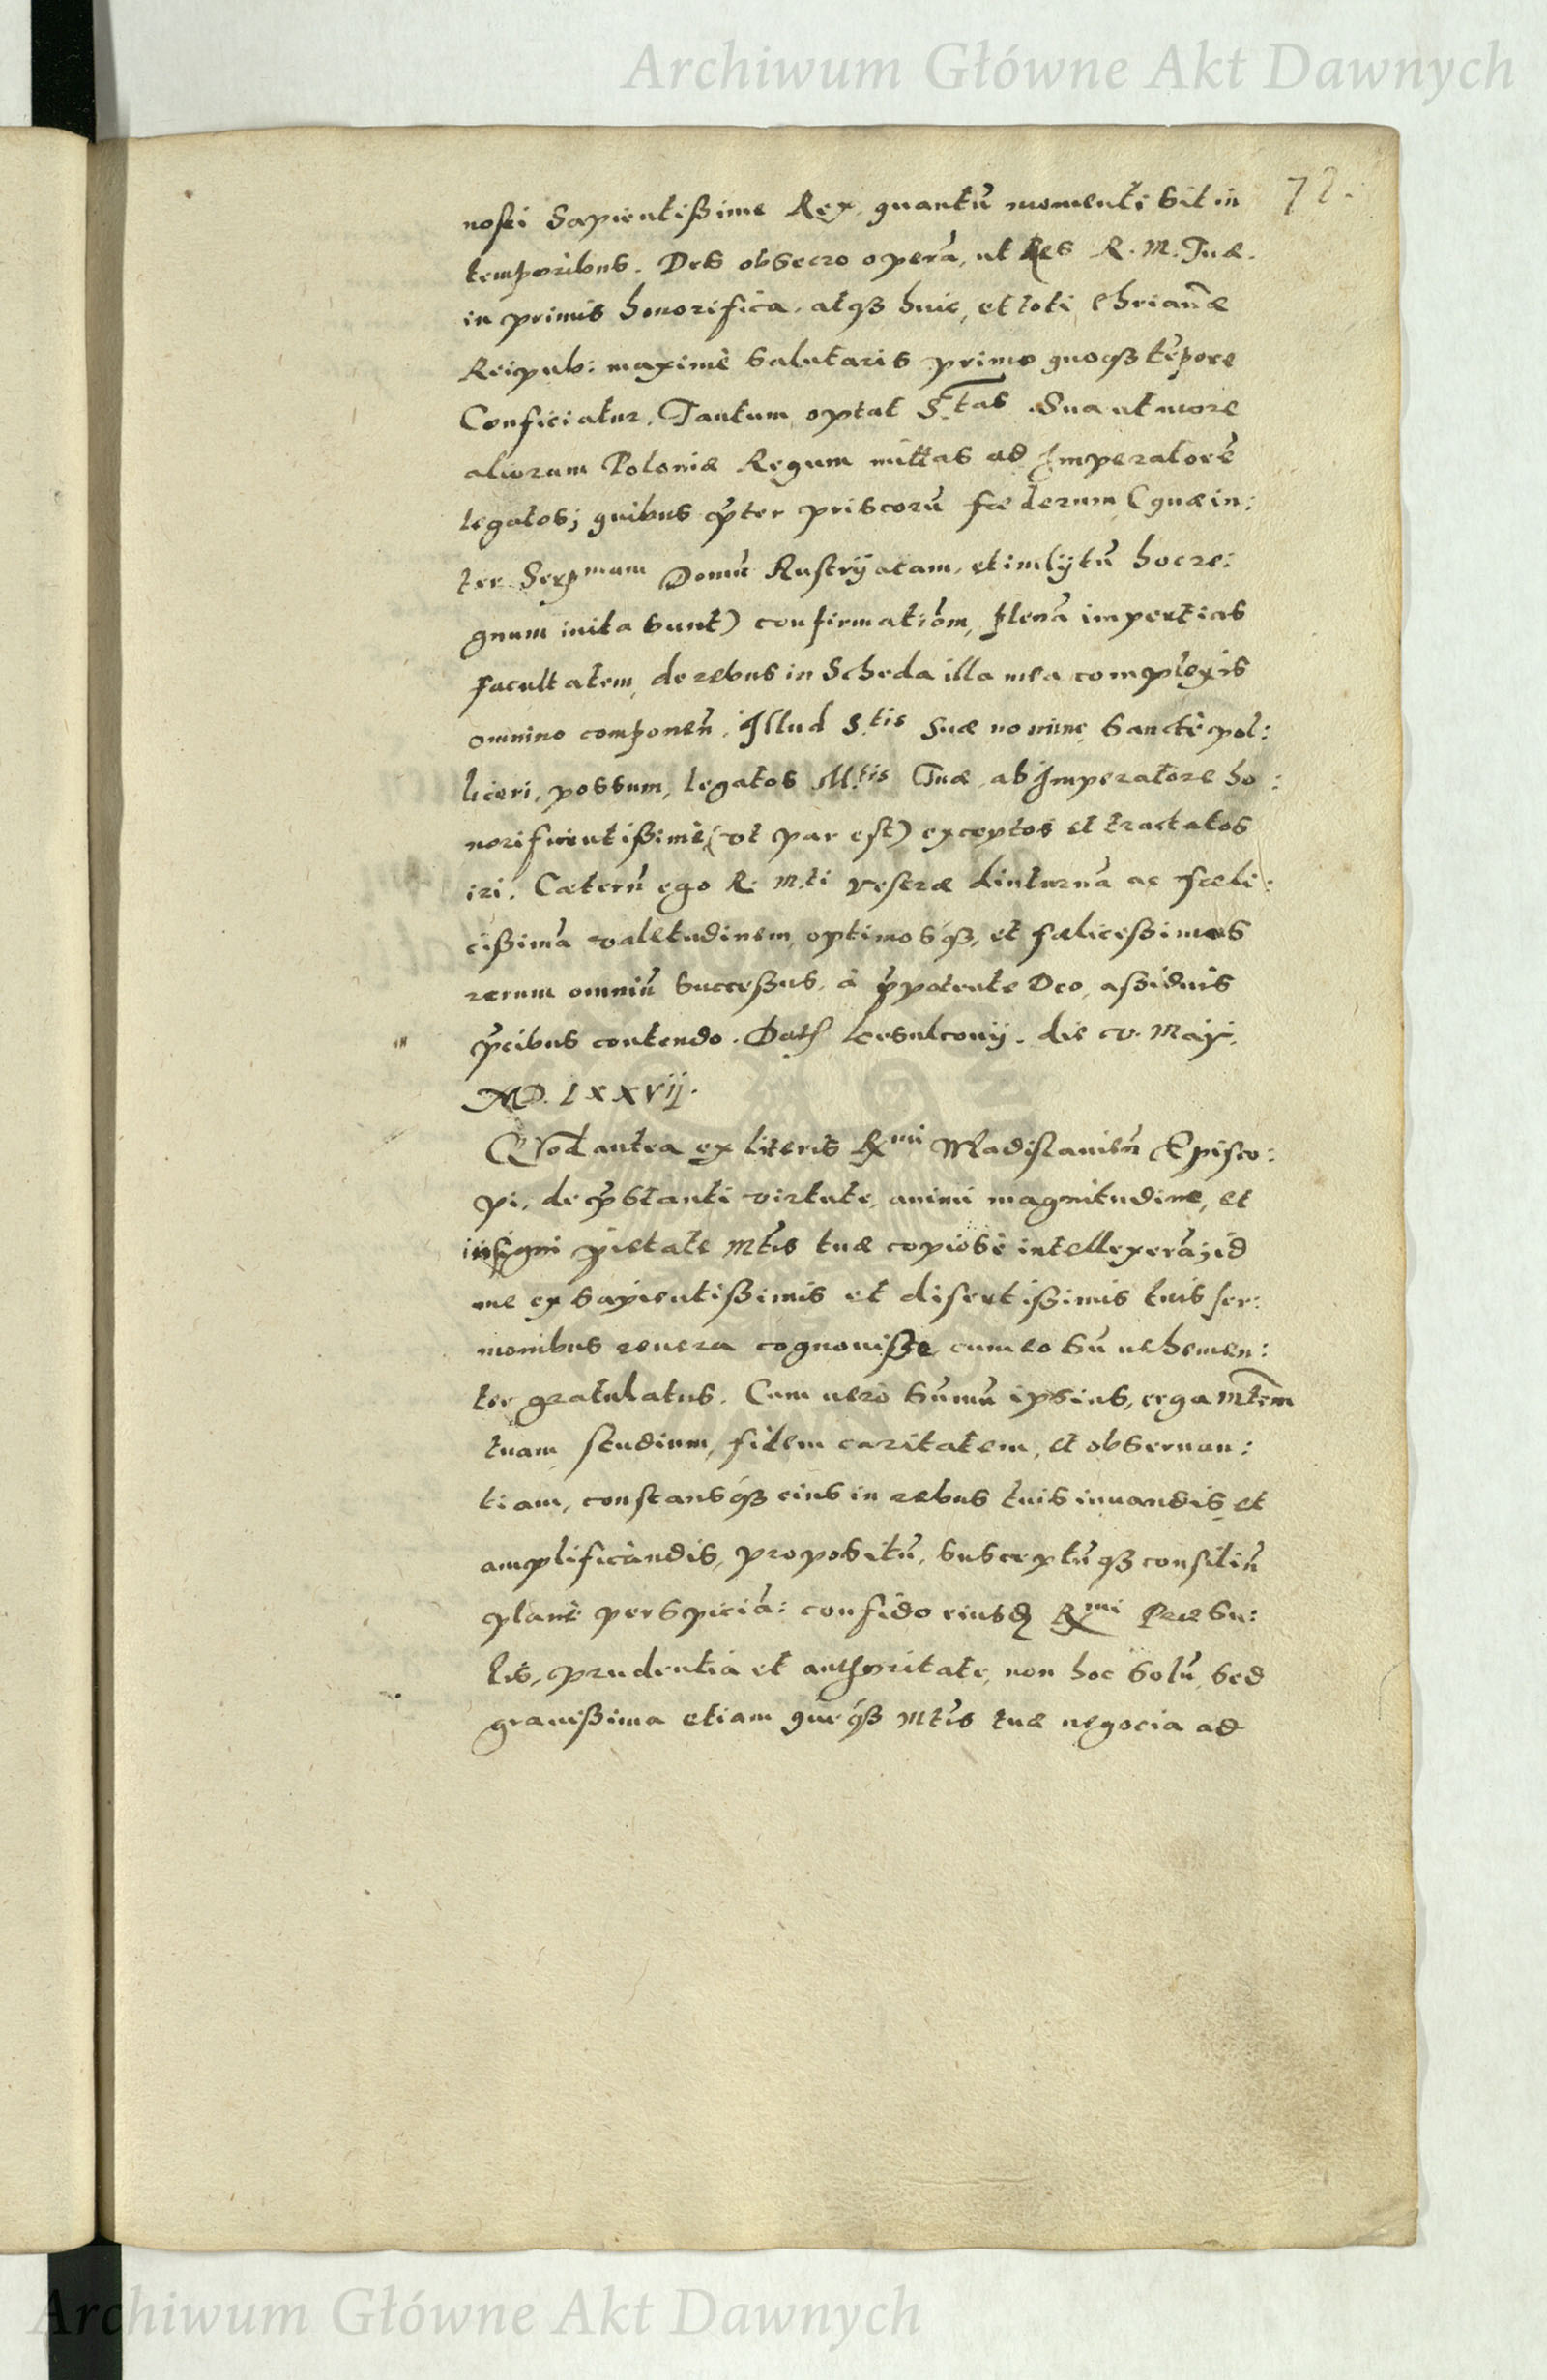 Archiwum Główne Akt Dawnych
72.
nosti Sapientißime Rex, quantũ momenti sit in
temporibus. Des obsecro operã, ut Res R. M. Tuæ.
in primis honorifica, atqȝ huic, et toti Chrianæ
Reipub: maximè salutaris primo quoqȝ tẽpore
Conficiatur. Tantum optat S.tas Sua ut more
aliorum Poloniæ Regum mittas ad Imperatorẽ
legatos; quibus p̃ter priscorũ fœderum (quæ in:
ter Serᵐmam Domũ Austrijacam, et inclytũ hoc re:
gnum inita sunt) confirmatiõm, plenã impertias
facultatem, de rebus in Scheda illa mea complexis
omnino componeñ. Illud S.tis Suæ nomine, sanctè pol:
liceri, possum, legatos M.tis Tuæ, ab Imperatore ho:
norificentißimè (vt par est) exceptos et tractatos
iri. Cæterũ ego R. M.ti Vestræ diuturnã ac fœli:
cißimã valetudinem, optimosqȝ, et fælicessimos
rerum omniũ succeßus, à p̃potente Deo, aßiduis
p̃cibus contendo. Dat. die V. Maij.
MD. LXXVij.
QVod antea ex literis Rᵐⁱ Wladislauieñ Episco:
pi, de p̃stanti virtute, animi magnitudine, et
insigni pietate Mtis tuæ copiosè intellexerã; id
me ex sapientißimis et disertißimis tuis ser:
monibus reuera cognouiße, cum eo sũ uehemen:
ter gratulatus. Cum uerò sũmũ ipsius, erga Mtẽm
tuam studium, fidem caritatem, et obseruan:
tiam, constansqȝ eius in rebus tuis iuuandis et
amplificandis, propositũ, susceptũqȝ consiliũ
planè perspiciã: confido eiusdȝ Rᵐⁱ Præsu:
lis, prudentia et authoritate, non hoc solũ, sed
grauißima etiam quæqȝ Mtis tuæ negocia ad
Archiwum Główne Akt Dawnych